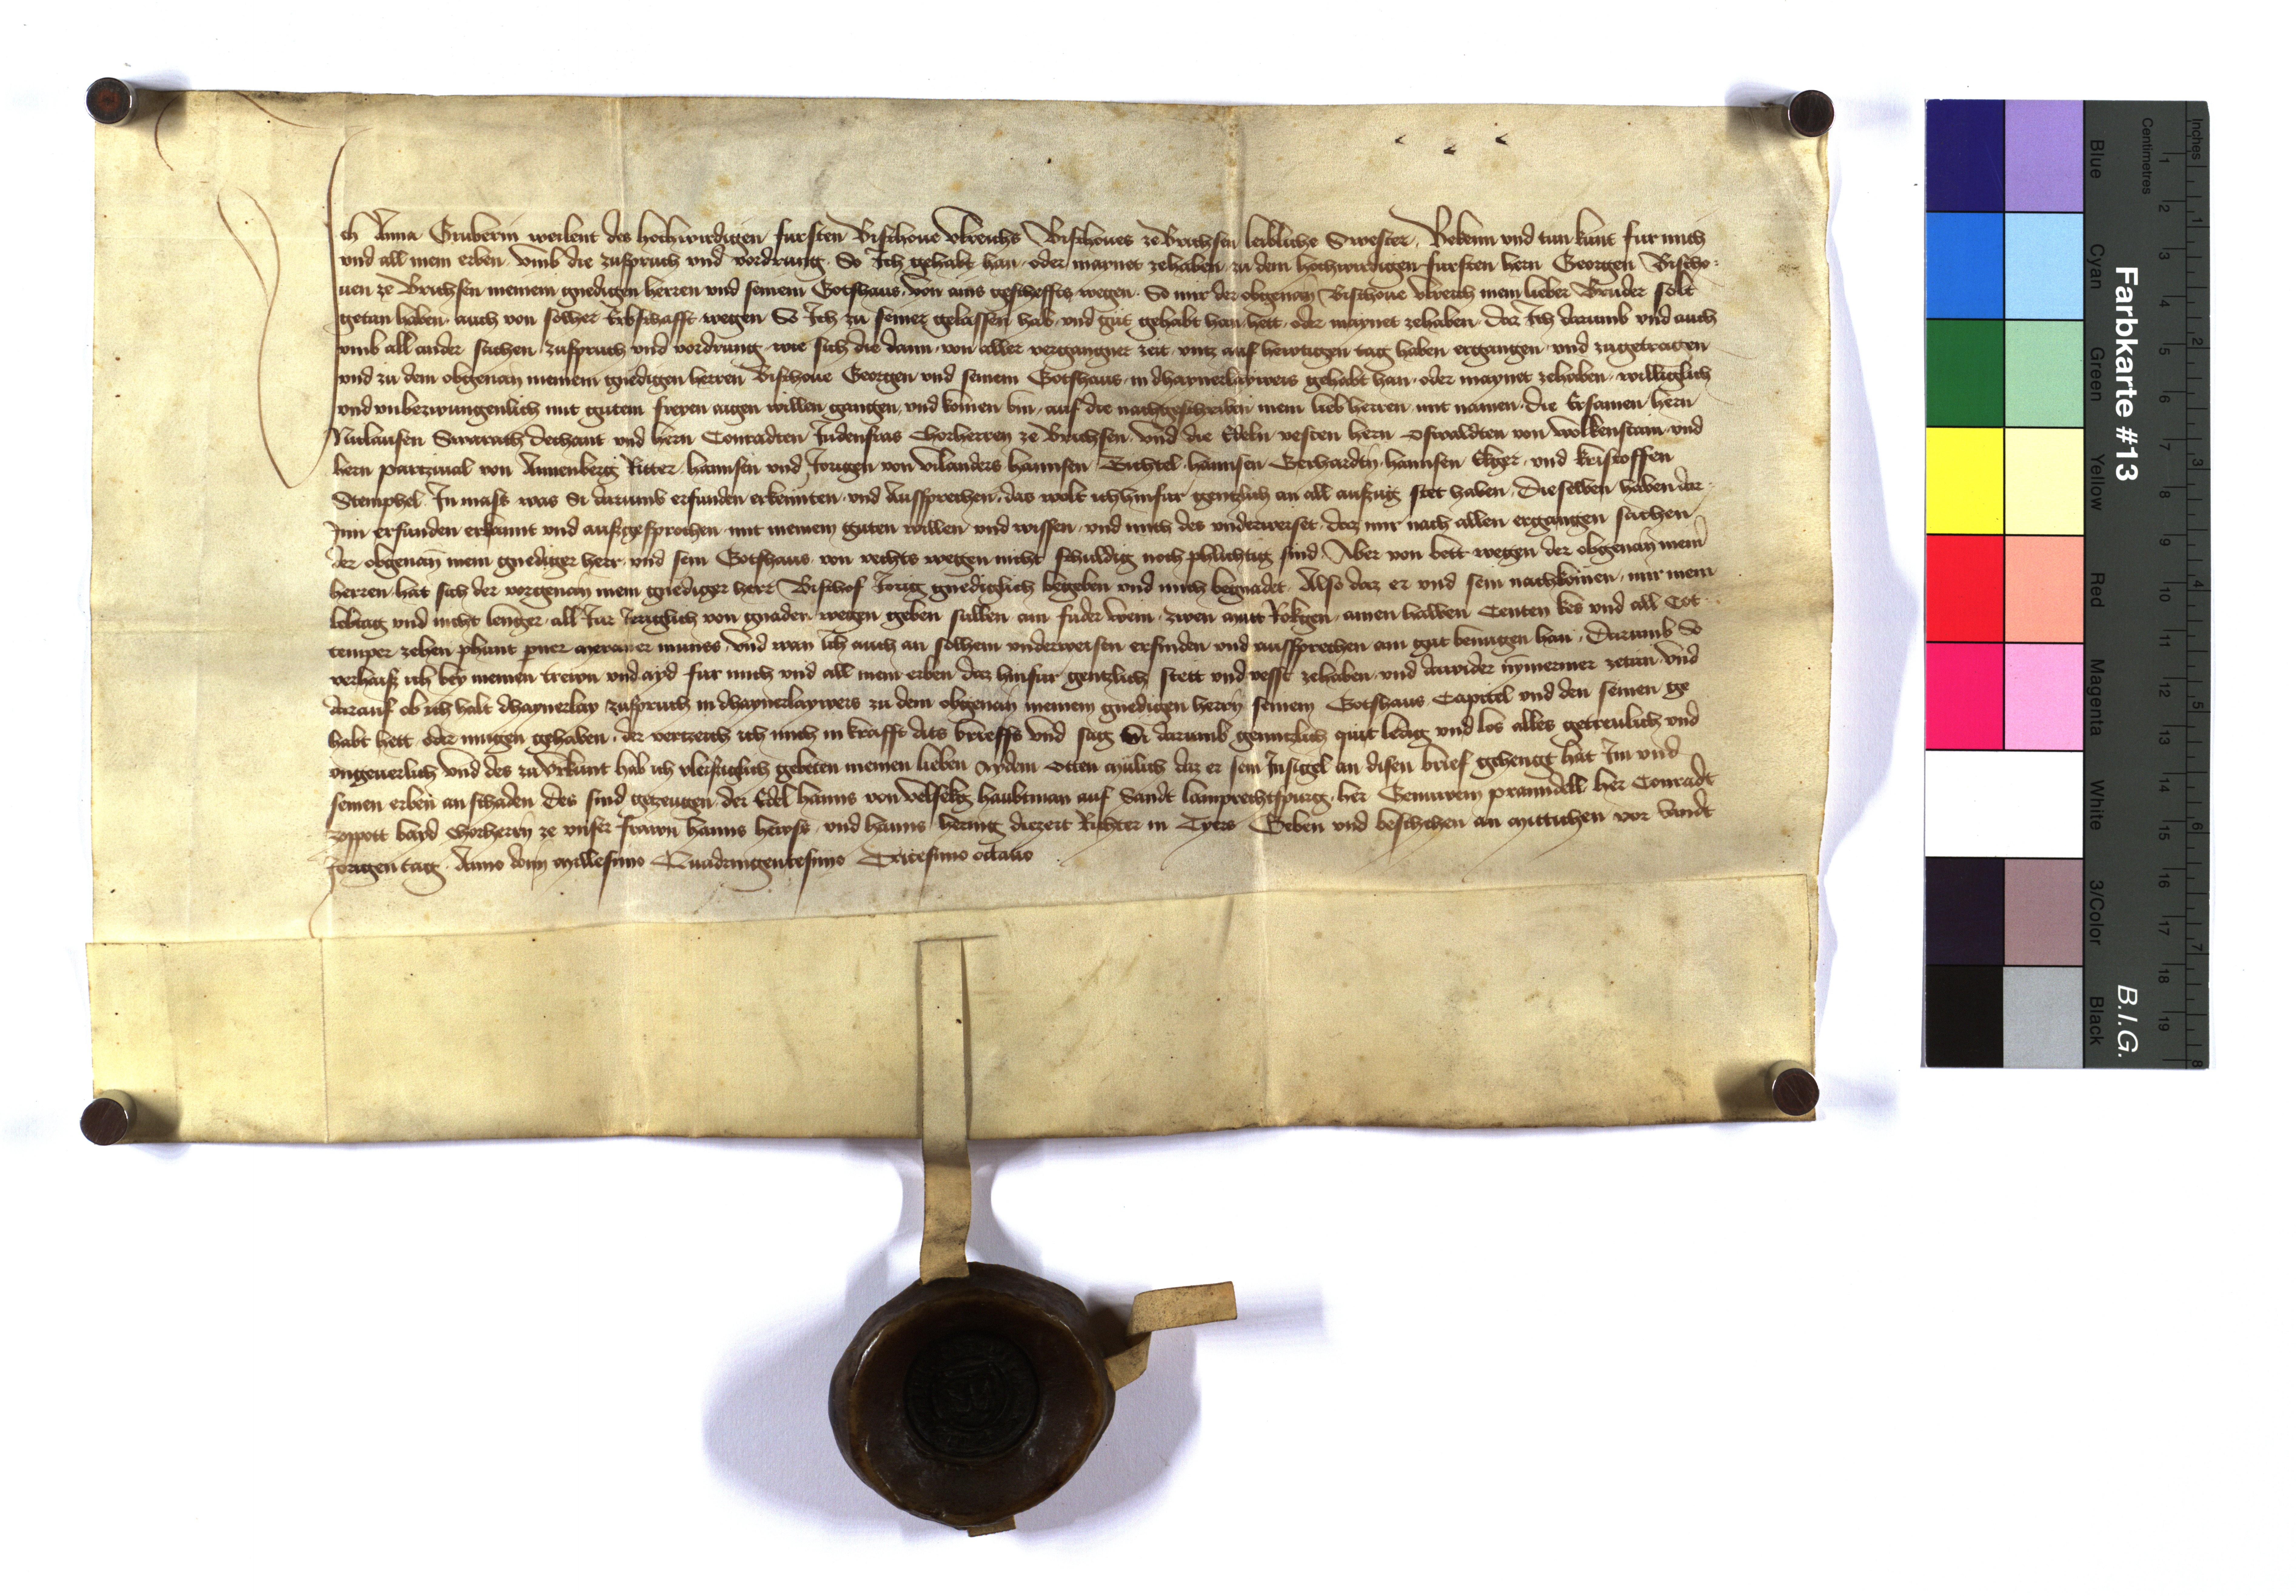 Ich Anna Gruberin weilent des hochwirdigen fursten Bischoue Vlreichs Bischoues ze Brichsen leibliche Swester Bekenn und tun kunt fur mich
und all mein erben vmb die zuspruch und vordrung So Ich gehabt han oder maynet zehaben zu dem hochwirdigen fursten hern Georgen Bischo-
uen ze Brichsen meinem gnedigen herren und seinem Gotshaus von ains gescheffts wegen So mir der obgenan Bischoue Vlreich mein lieber Bruder solt
getan haben auch von solher Erbschafft wegen So Ich zu seiner gelassen hab und gut gehabt han hett oder maynet zehaben daz Ich darumb und auch
vmb all ander sachen zuspruch und vordrung wie sich die dann von aller vergangner zeit vntz auf hewtigen tag haben ergangen und zugetragen
und zu dem obgenan meinem gnedigen herren Bischoue Georgen und seinem Gotshaus in dhaynerlayweis gehabt han oder maynet zehaben williglich
und vnbezwungenlich mit gutem freyen aigen willen gangen und komen bin auf die nachgeschriben mein lieb herren mit namen die Ersamen hern
Niclausen Swarach dechant und hern Conradten Judenfras Chorherren ze Brichsen und die Edeln vesten hern Oswaldten von Wolkenstain und
hern partziual von Annenberg Ritter hannsen und Jorigen von Vilanders hannsen hannsen Gerhardin hannsen Ekger und kristoffen
Stemphel In mass was Si darumb erfunden erkennten und Aussprechen das wolt ich hinfur gentzlich an all auszug stet haben Dieselben haben dar-
Inn erfunden erkannt und auszgesprochen mit meinem guten willen und wissen und mich des vnderweiset daz mir nach allen ergangen sachen
der obgenan mein gnediger herr und sein Gotshaus von rechts wegen nicht schuldig noch phlichtig sind Aber von bett wegen der obgenan mein
herren hat sich der vorgenan mein gnediger herr Bischof Jorig gnediglich begeben und mich begnadet Also daz er und sein nachkomen mir mein
lebtag und nicht lenger all Jar Jerglich von gnaden wegen geben sullen ain fuder wein zwen mutt Rokgen ainen halben Centen kes und all Cot-
temper zehen phunt perner meraner munss und wan Ich auch an solhem vnderweisen erfinden und aussprechen ain gut benugen han Darumb So
verhaiss ich bey meinen trewn und ayd fur mich und all mein erben daz hinfur gentzlich stett und vesst zehaben und dawider nymermer zetun und
darauf ob ich halt dhaynerlay zuspruch in dhaynerlayweis zu dem obgenan meinem gnedigen herrn seinem Gotshaus Capitel und den seinen ge
habt hett oder mugen gehaben der verzeich ich mich in krafft dits brieffs und sag Si darumb genntzlich quit ledig und los alles getreulich und
vngeuerlich und des zu Vrkunt hab ich vleissiglich gebeten meinen lieben Aydem Otten Mulich daz er sein Insigel an disen brief gehengt hat Im und
seinen erben an schaden des sind gezeugen der Edel hanns von Velsekg haubtman auf Sandt lamprechtspurg her her Conradt
bayd Chorherrn ze vnser frawn hanns hewss und hanns hering diezeit Richter in Tyers Geben und beschehen an Mittichen vor Sandt
Jorigen tag Anno domini Millesimo Quadringentesimo Tricesimo octauo
Farbkarte #13
B.I.G.
Inches
Centimetres
1 2 3 4 5 6 7 8
1 2 3 4 5 6 7 8 9 10 11 12 13 14 15 16 17 18 19
Blue
Cyan
Green
Yellow
Red
Magenta
White
3/Color
Black